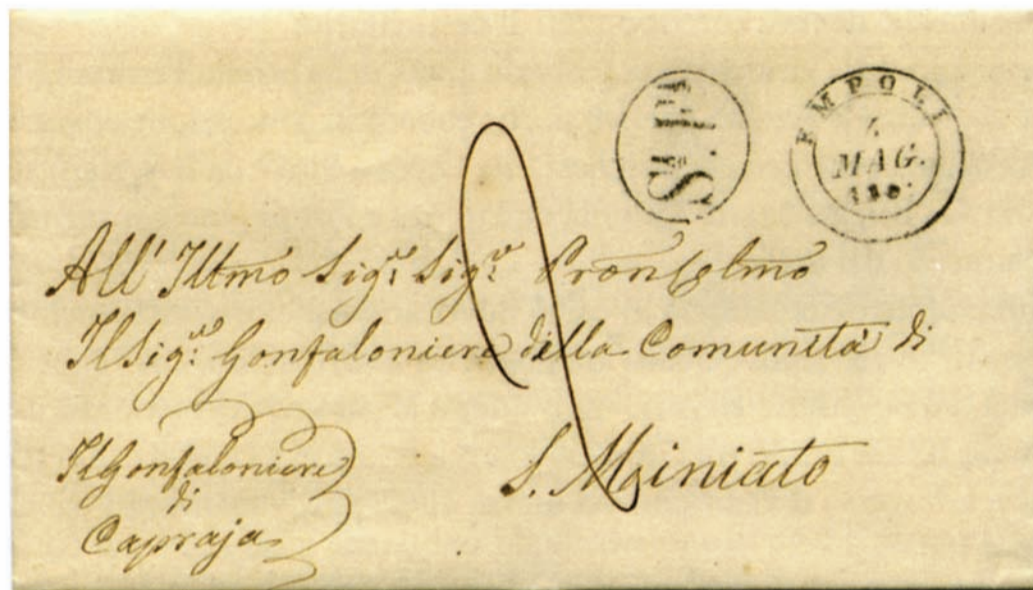 S.P.
EMPOLI
MAG.
All' Illmo Sigr. Sigr. Pron Colmo
Il Sigr. Gonfaloniere della Comunità di
S. Miniato
Il Gonfaloniere
di
Capraja